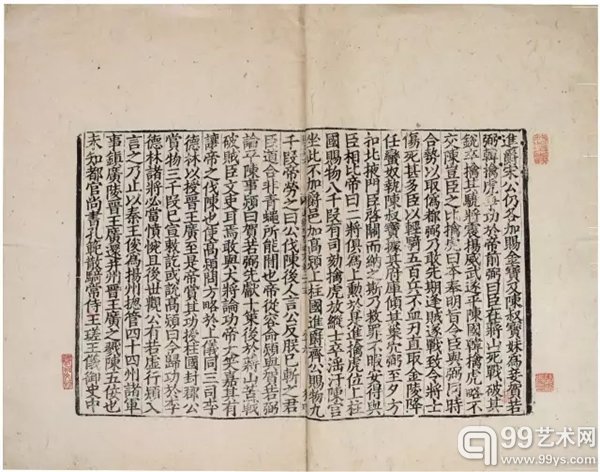 進爵宋公仍各加賜金寶及陳叔寶妹為妾賀若
弼韓擒虎爭功於帝前弼曰臣在蔣山死戰破其
銳卒擒其驍將震揚威武遂平陳國韓擒虎略不
交陳豈臣之比擒虎曰本奉明旨令臣與弼同時
合勢以取偽都弼乃敢先期逢賊遂戰致令將士
傷死甚多臣以輕騎五百兵不血刃直取金陵降
任蠻奴執陳叔寶據其府庫傾其巢穴弼至夕方
扣北掖門臣啓關而納之斯乃救罪不暇安得與
臣相比帝曰二將俱為上勳於是進擒虎位上柱
國賜物八千段有司劾擒虎放縱士卒淫汙陳宮
坐此不加爵邑加高熲上柱國進爵齊公賜物九
千段帝勞之曰公伐陳後人言公反朕已斬之君
臣道合非青蠅所能間也帝從容命熲與賀若弼
論平陳事熲曰賀若弼先獻十策後於蔣山苦戰
破賊臣文吏耳焉敢與大將論功帝大笑嘉其有
讓帝之伐陳也使高熲問方略於上儀同三司李
德林以授晉王廣至是帝賞其功授柱國封郡公
賞物三千段已宣敕訖或說高熲曰今歸功於李
德林諸將必當憤惋且後世觀公有若虛行熲入
言之乃止以秦王俊為揚州總管四十四州諸軍
事鎮廣陵晉王廣還并州晉王廣之戮陳五佞也
未知都官尚書孔範散騎常侍王瑳王儀御史中
99艺术网
www.99ys.com